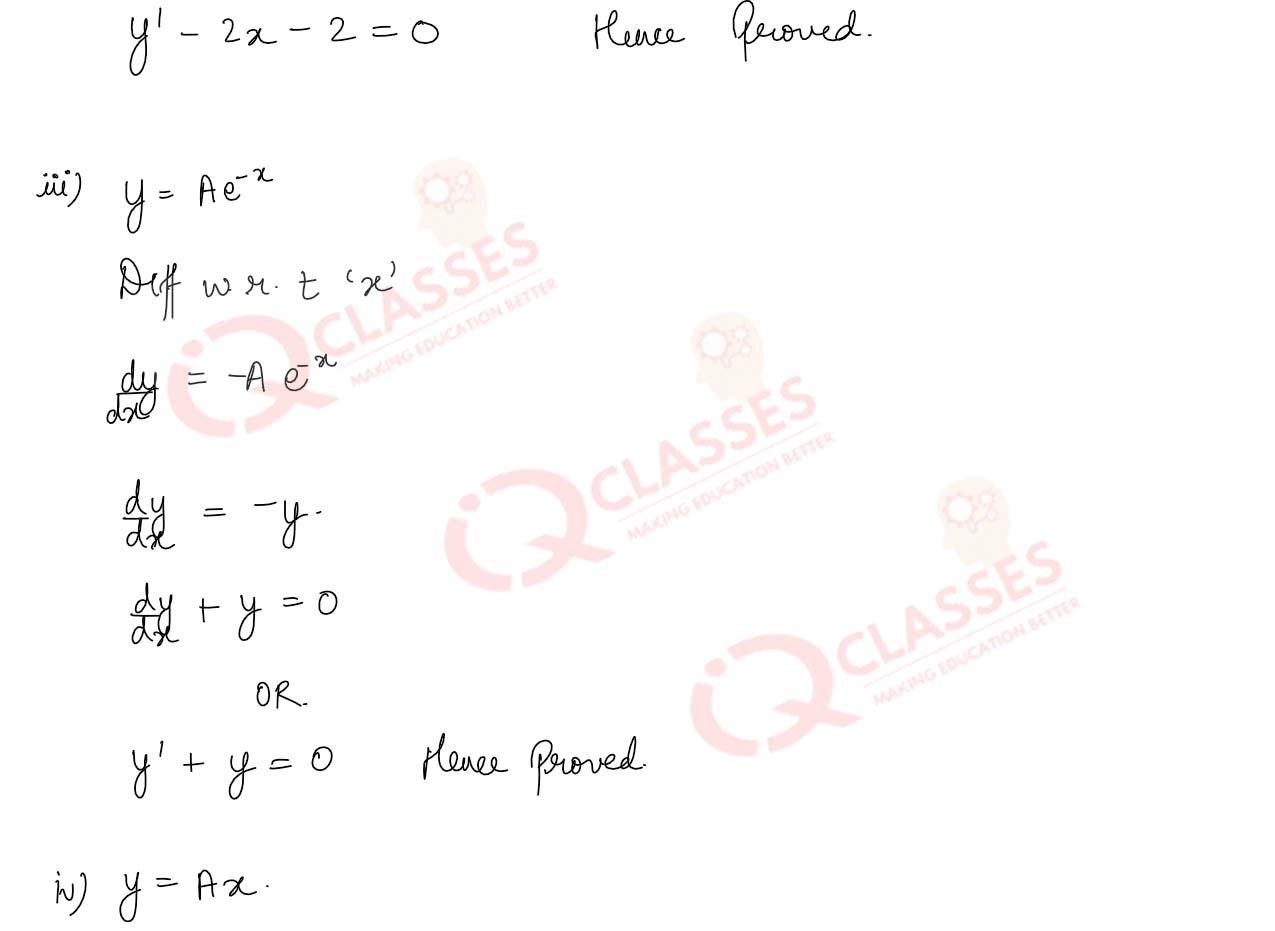 y' - 2x - 2 = 0 Hence Proved.
iii) y = Ae^-x
Diff w r. t 'x'
dy/dx = -A e^-x
dy/dx = -y.
dy/dx + y = 0
OR.
y' + y = 0 Hence Proved.
iv) y = Ax.
IQ CLASSES
MAKING EDUCATION BETTER
IQ CLASSES
MAKING EDUCATION BETTER
IQ CLASSES
MAKING EDUCATION BETTER